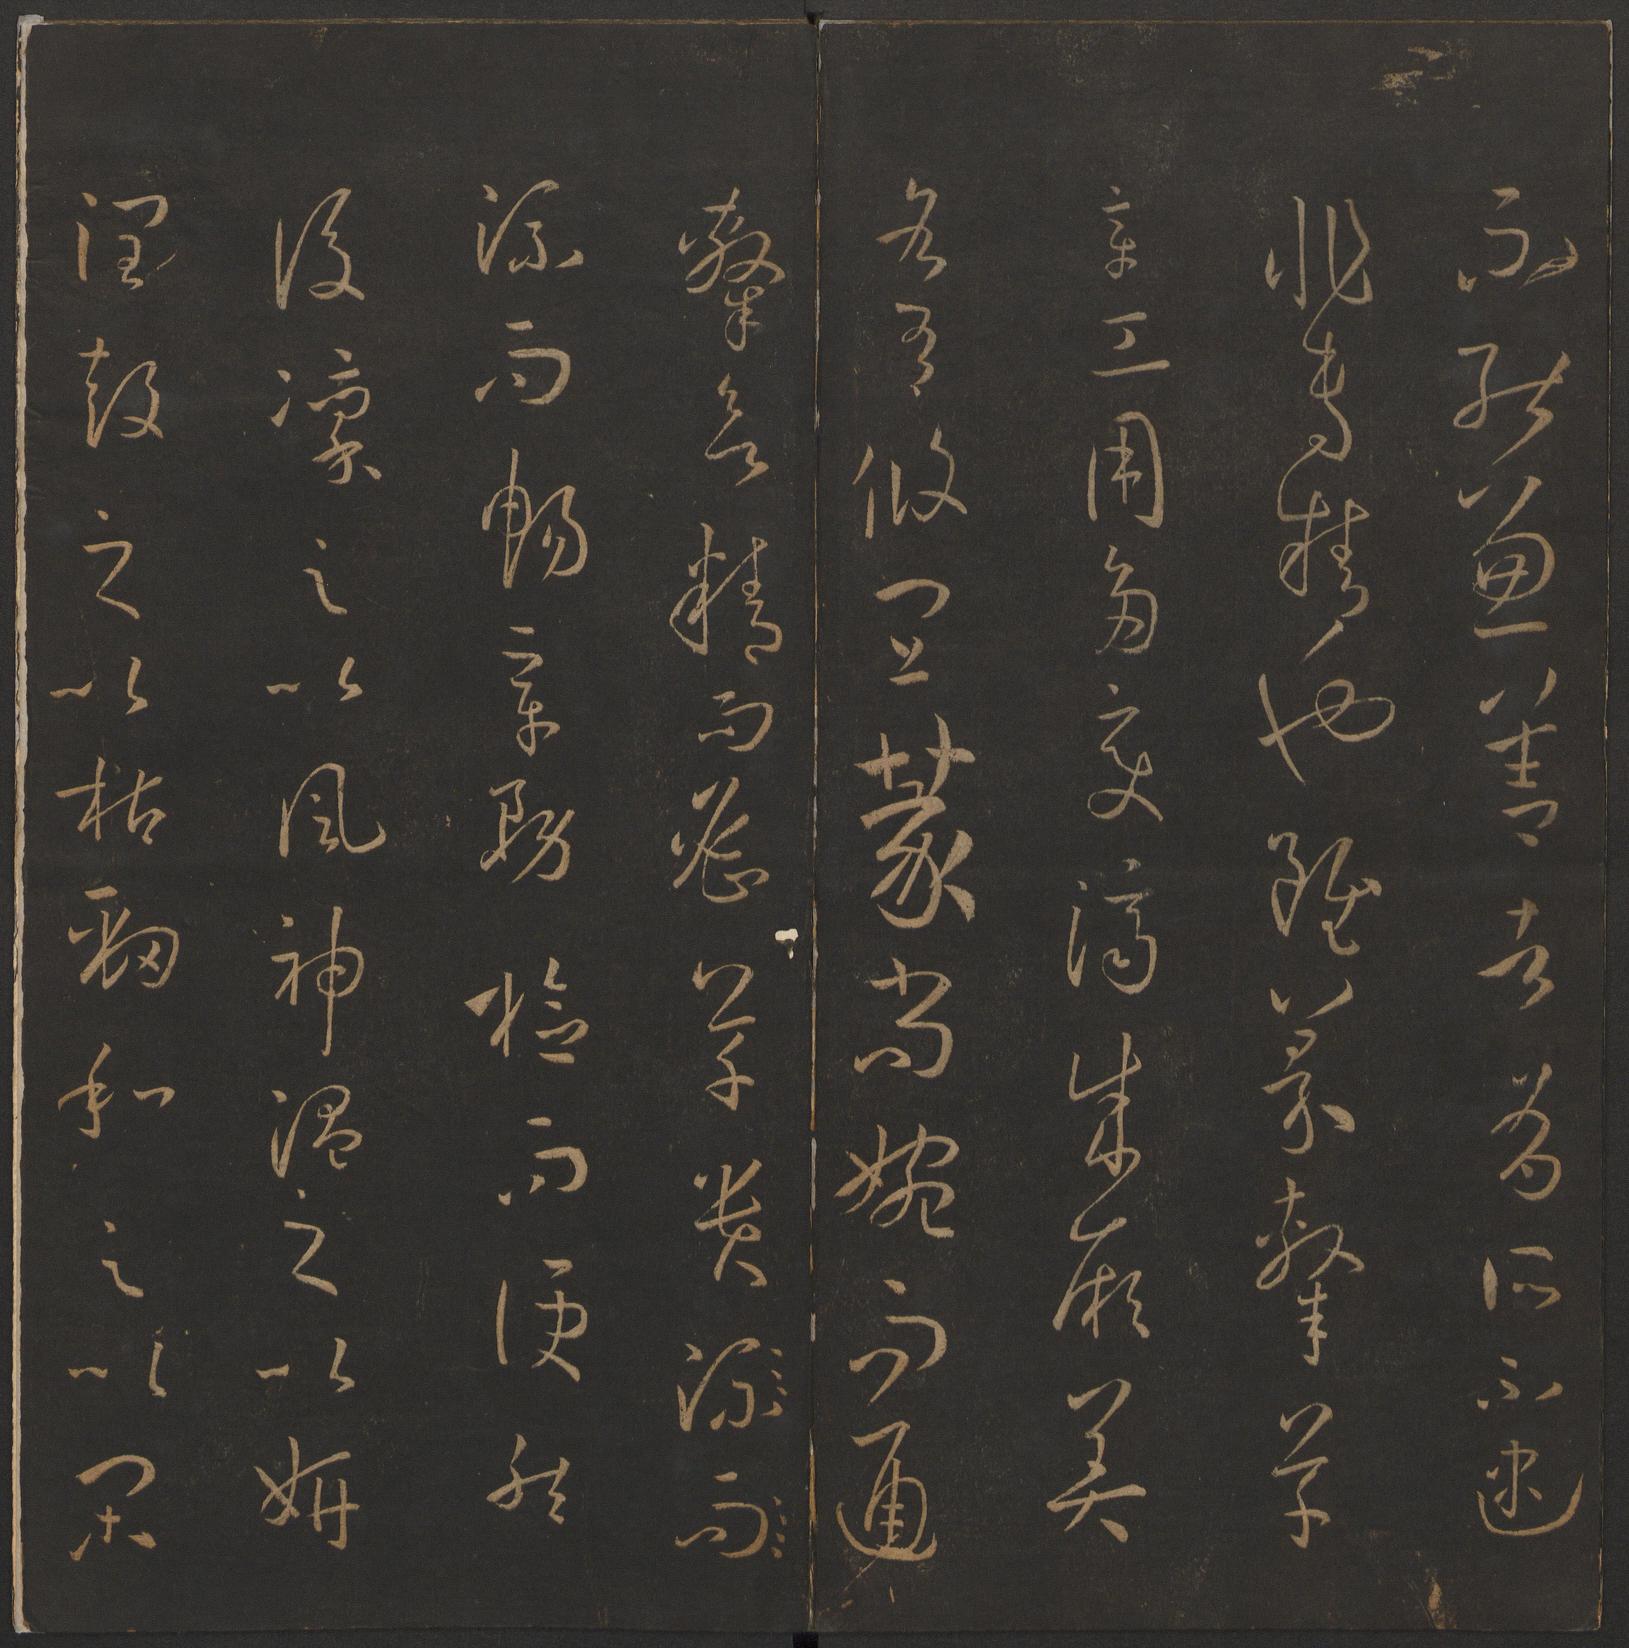 不能兼善者有所不逮
非專精也雖篆隸草
章工用多變濟成厥美
各有攸宜篆尚婉而通
隸欲精而密草貴流而
流而暢章務檢而便然
後凜之以風神溫之以妍
潤鼓之以枯勁和之以閑